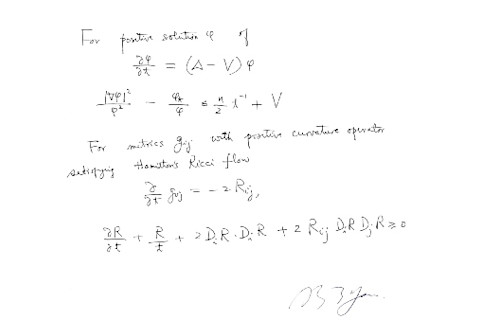 For positive solution φ of
∂φ/∂t = (Δ − V) φ
|∇φ|²/φ² − φₜ/φ ≤ n/2 t⁻¹ + V
For metrics gᵢⱼ with positive curvature operator
satisfying Hamilton's Ricci flow
∂/∂t gᵢⱼ = −2 Rᵢⱼ,
∂R/∂t + R/t + 2 DᵢR · DᵢR + 2 Rᵢⱼ DᵢR DⱼR ≥ 0